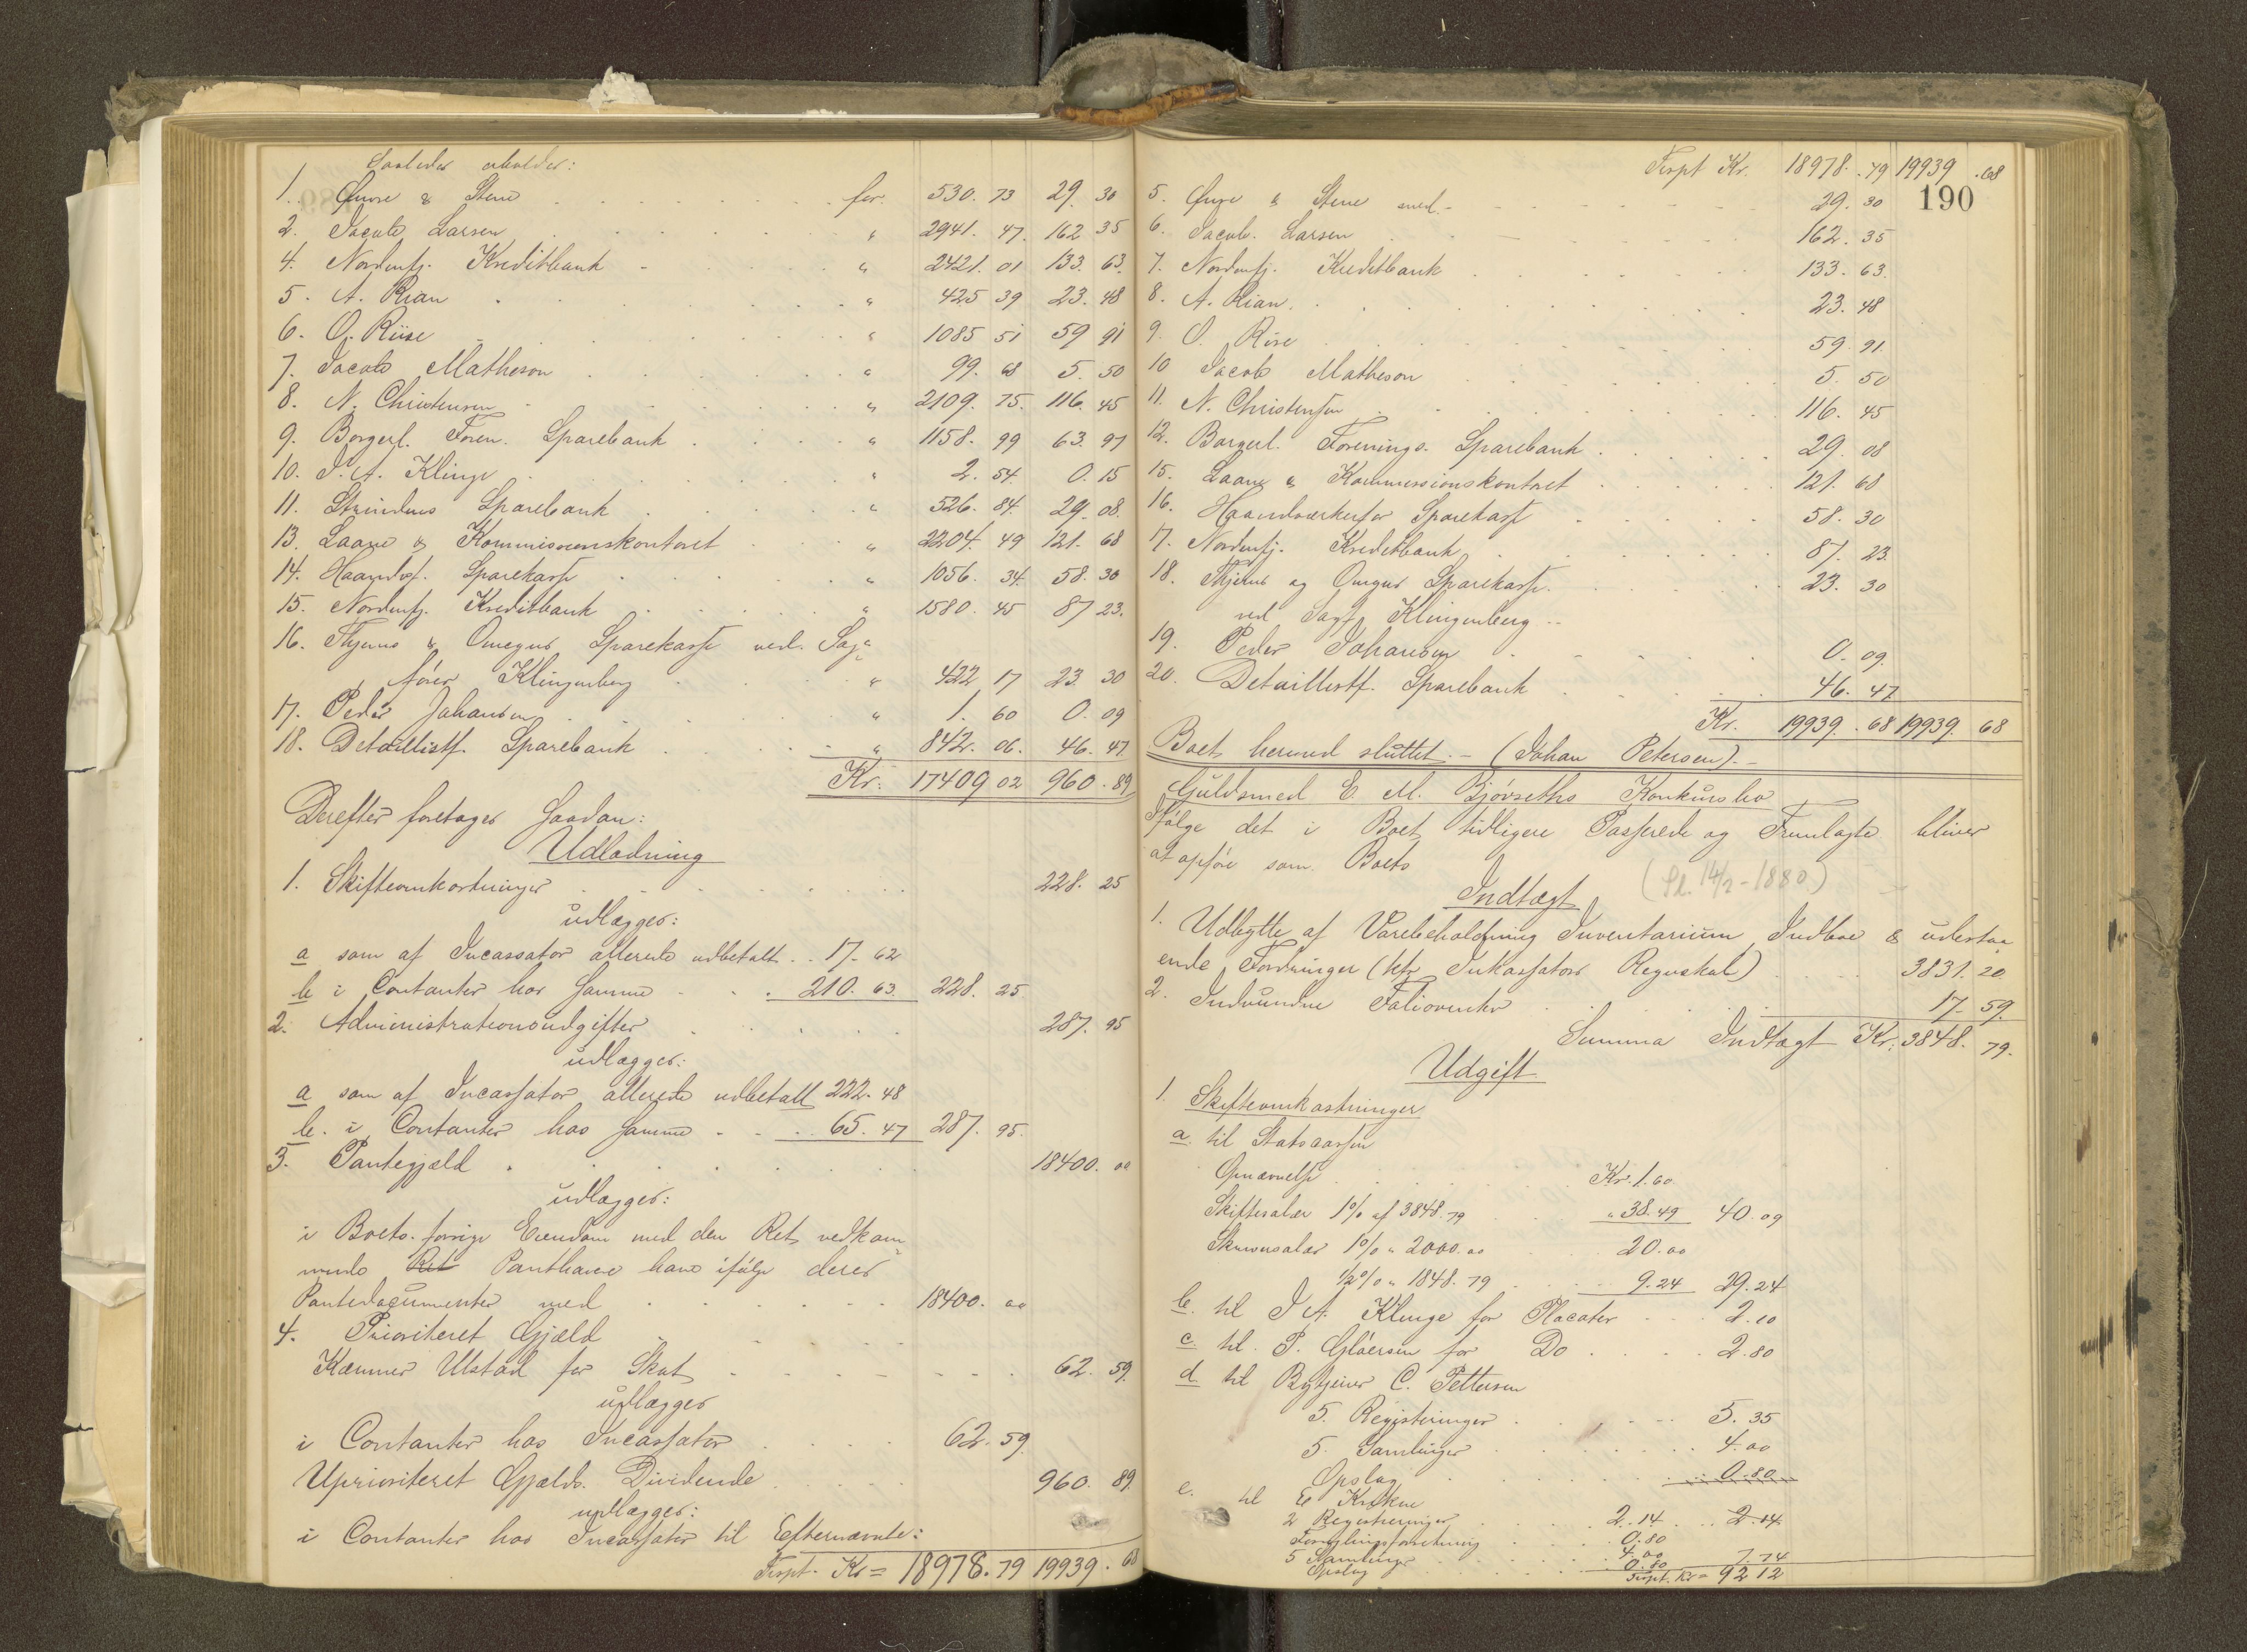 Saaledes erholder:
1. Øwre & Stene for 530. 73 29. 30
2. Jacob Larsen " 2941. 47. 162 35
4. Nordenfj. Kreditbank " 2421. 01 133. 63.
5. A. Rian " 425 39 23. 48
6. O. Riise " 1085 51 59 91
7. Jacob Matheson " 99. 68 5. 50
8. N. Christensen " 2109. 75. 116. 45
9. Borgerl. Foren. Sparebank " 1158. 99 63. 97
10. I. A. Klinge " 2. 54. 0. 15
11. Strindens Sparebank " 526. 84. 29. 08.
13. Laane & Kommissionskontoret " 2204. 49 121. 68
14. Haandv. Sparekasse " 1056. 34. 58. 30
15. Nordenfj. Kreditbank " 1580. 45 87 23.
16. Thjems & Omegns Sparekasse ved. Sag-
fører Klingenberg " 422 17 23. 30
17. Peder Johansen " 1. 60 0. 09
18. Detaillistf. Sparebank " 842. 06. 46. 47.
Kr: 17409 02 960. 89
Derefter foretages saadan:
Udlodning
1. Skifteomkostninger 228. 25
udlægges:
a som af Incassator allerede udbetalt 17. 62
b i Contanter hos samme 210. 63. 228. 25
2. Administrationsudgifter 287. 95
udlægges:
a som af Incassator allerede udbetalt 222. 48
b. i Contanter hos samme 65. 47 287. 95.
3. Pantegjæld 18400. 00
udlægges:
i Boets forrige Eiendom med den Ret vedkom
mende Ret Panthavere have ifølge deres
Pantedocumenter med 18400. 00
4. Prioriteret Gjæld
Kæmner Ulstad for Skat 62. 59.
udlægges
i Contanter hos Incassator 62. 59.
Uprioriteret Gjælds. Dividende 960. 89.
udlægges:
i Contanter hos Incassator til Efternævnte:
Trspt. Kr= 18978. 79 19939. 68
Trspt Kr. 18978. 79 19939. 68
190
5. Øwre & Stene med 29. 30
6. Jacob. Larsen 162. 35
7. Nordenfj. Kreditbank 133. 63.
8. A. Rian 23. 48
9. O. Riise 59. 91.
10 Jacob Matheson 5. 50
11. N. Christensen 116. 45
12. Borgerl. Forenings. Sparebank 29. 08
15. Laane & Kommissionskontoret 121. 68
16. Haandværkerfor Sparekasse 58. 30
17. Nordenfj. Kreditbank 87. 23.
18. Thjems og Omegns Sparekasse 23. 30
ved Sagf. Klingenberg
19. Peder Johansen 0. 09.
20. Detaillistf. Sparebank 46. 47
Kr. 19939. 68 19939. 68
Boet hermed sluttet. - (Johan Petersen). -
Guldsmed E. M. Bjørseths Konkursbo
Ifølge det i Boet tidligere Passerede og Fremlagte bliver
at opføre som Boets
Indtægt (Sl. 14/2 - 1880)
1. Udbytte af Varebeholdning Inventarium, Indbo & udestaa
ende Fordringer (kfr Inkassators Regnskab) 3831. 20
2. Indvundne 17. 59.
Summa Indtægt Kr: 3848. 79.
Udgift
1. Skifteomkostninger
a. til Statscassen
Opnævnelse Kr. 1. 60
Skiftesalær 1% af 3848. 79 " 38. 49 40. 09
Skriversalær 1% " 2000. 00 20. 00
1/2% " 1848. 79 9. 24 29. 24
b. til I A. Klinge for Placater 2. 10
c. til P. Gløersen for Do 2. 80
d til C. Pettersen
5. Registeringer 5. 35
5. Samlinger 4. 00
Opslag 0. 80
e. til E
2 Registreringer 2. 14 2. 14
Forseglingsforretning 0. 80
5 Samlinger 4. 00 7. 74
Opslag 0. 80
Trspt. Kr= 92 12